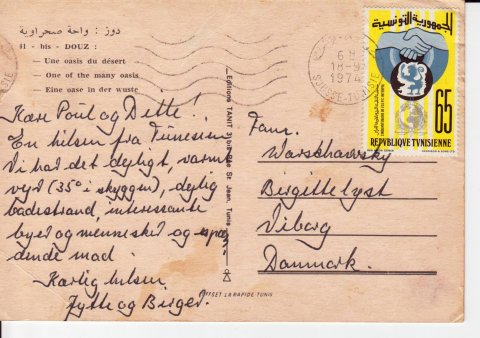 دوز : واحة صحراوية
11 - bis - DOUZ :
Une oasis du désert
One of the many oasis
Eine oase in der wuste
Kære Poul og Dette!
En hilsen fra Tunesien
Vi har det dejligt, varmt
vejr (35° i skyggen), dejlig
badestrand, interessante
byer og mennesker og spæn
dende mad.
Kærlig hilsen
Jytte og Birger.
Editions TANIT
Rue St. Jean, Tunis
OFFSET LA RAPIDE-TUNIS
الجمهورية التونسية
65
REPUBLIQUE TUNISIENNE
6 H
18-9
1974
SOUSSE-TUNISIE
Fam.
Warschawsky
Birgittelyst
Viborg
Danmark.